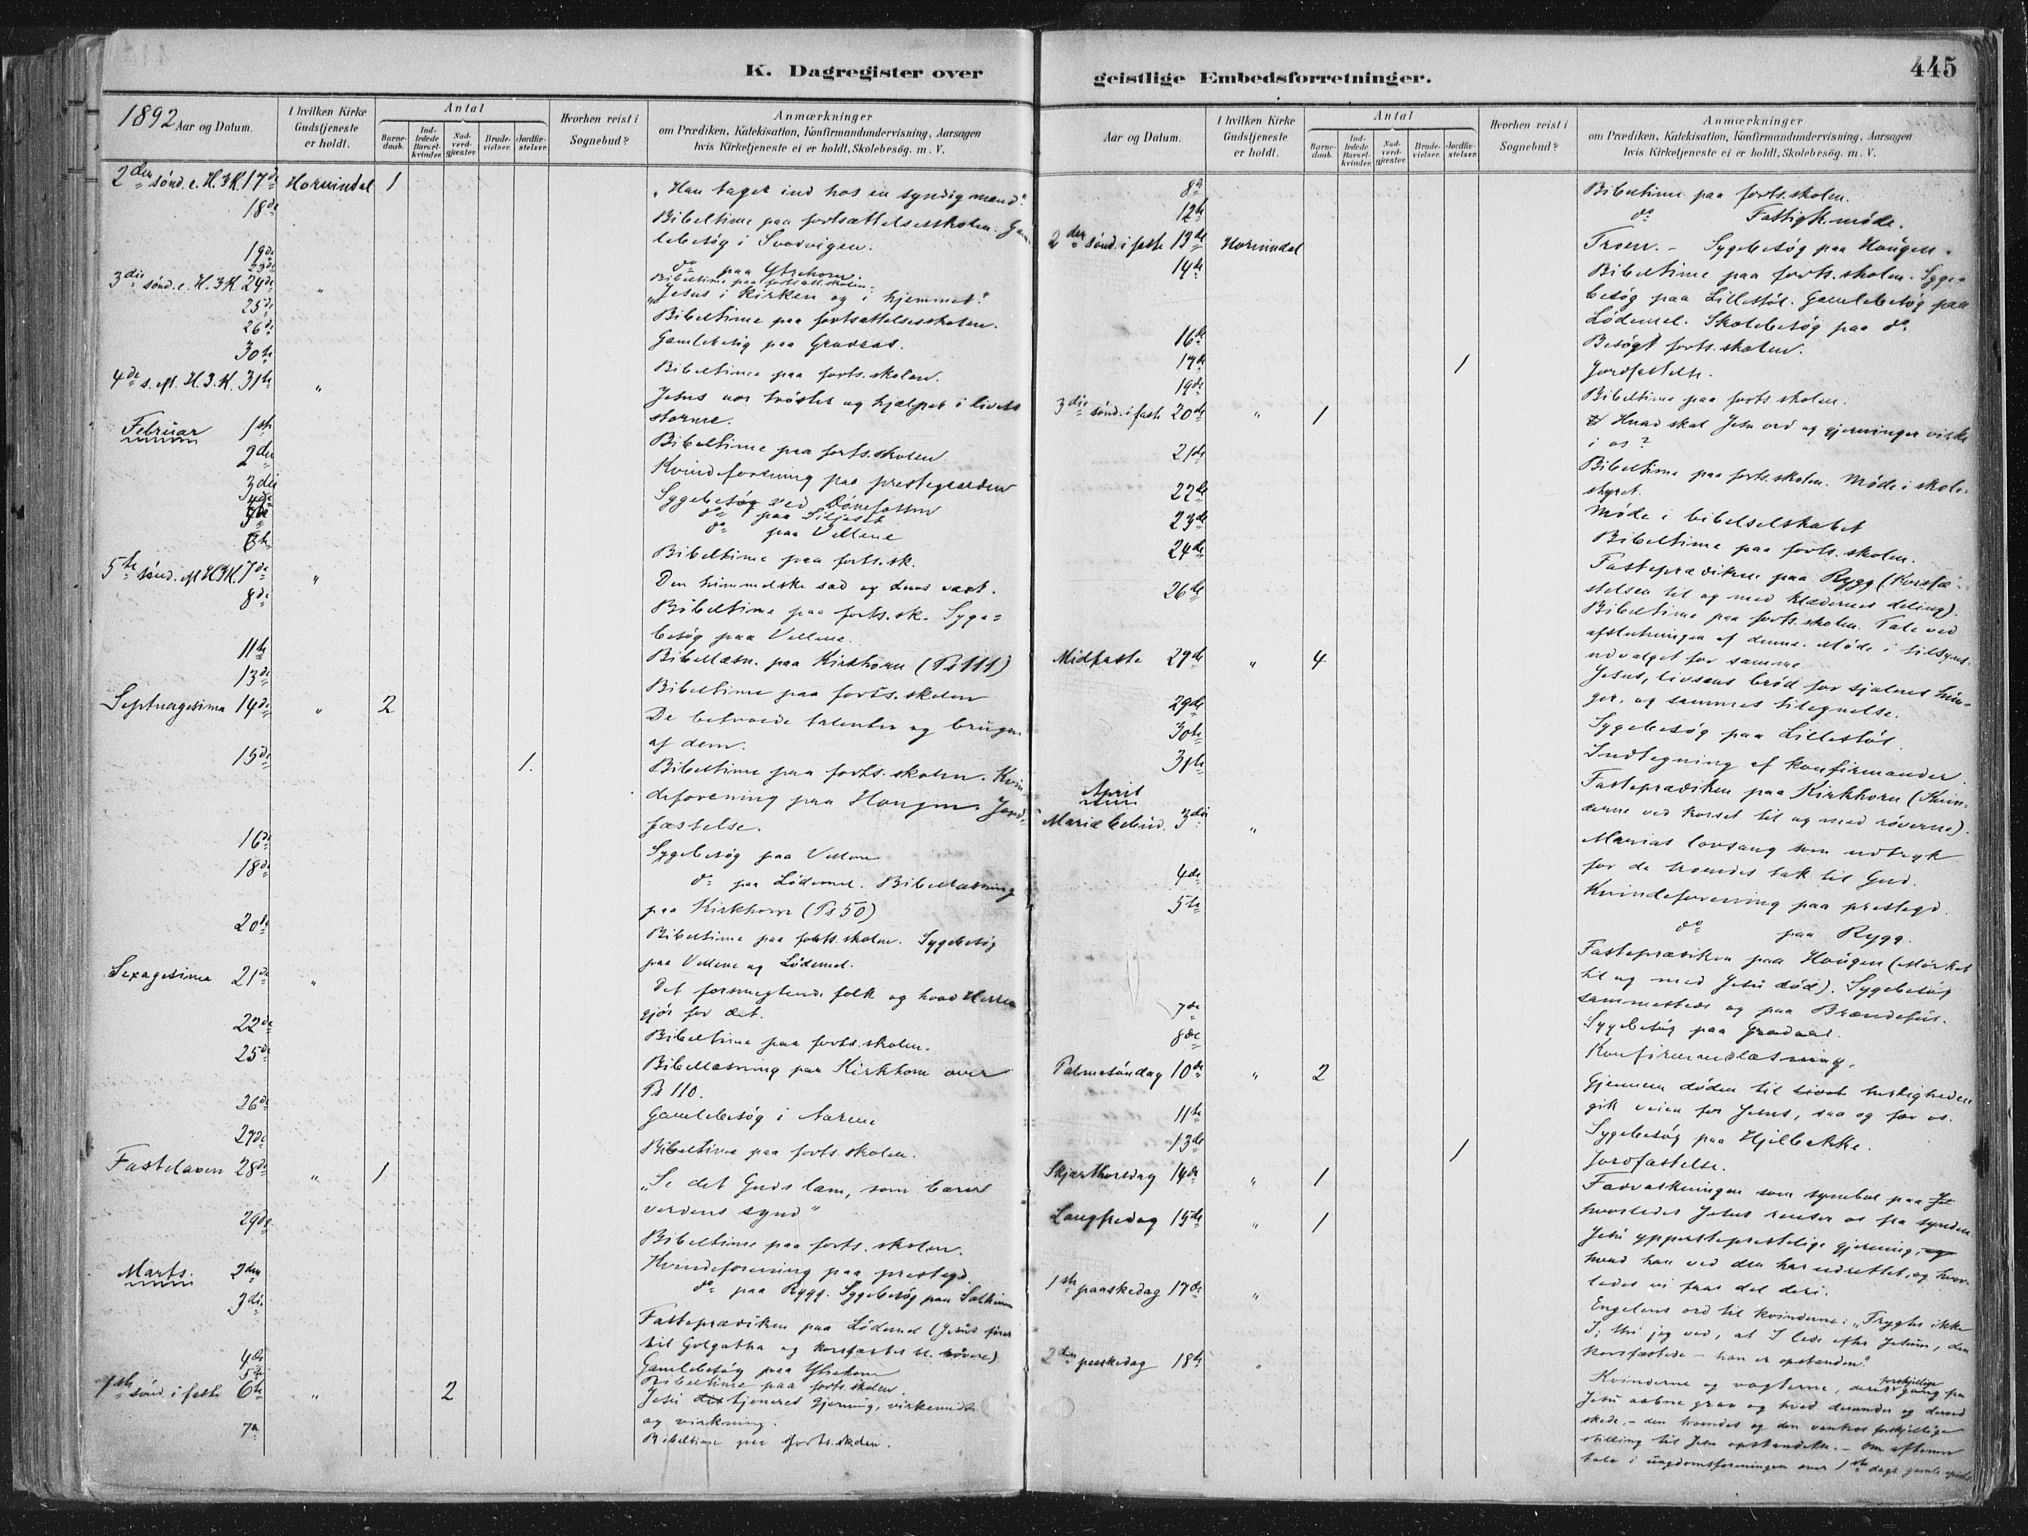 K. Dagregister over
1892
Aar og Datum.
I hvilken Kirke Gudstjeneste er holdt.
Antal
Barnedaab.
Indledede Barselkvinder.
Nadverdgjester.
Brudevielser.
Jordfæstelser.
Hvorhen reist i Sognebud?
Anmærkninger
om Prædiken, Katekisation, Konfirmandundervisning, Aarsagen
hvis Kirketjeneste ei er holdt, Skolebesøg. m. V.
2den sønd. e. H. 3 K. 17de Hornindal 1 „Han taget ind hos en syndig mand".
18de Bibeltime paa fortsættelsesskolen. Gam-
lebesøg i Svodvigen.
19de do paa Ytrehorn.
23de Bibeltime paa fortsatt.skolen.
3die sønd. e. H. 3 K. 24de " „Jesus i kirken og i hjemmet"
25de Bibeltime paa fortsættelsesskolen.
26de Gamlebesøg paa Graveas.
30te Bibeltime paa forts. skolen.
4de s. eft. H. 3. K. 31te " Jesus vor trøster og hjælper i livets
storme.
Februar 1ste Bibeltime paa forts. skolen.
2den Kvindeforening paa prestegaarden
3die Sygebesøg ved
4de do paa
5te do paa Vellene
6te Bibeltime paa forts. sk.
5te sønd. eft H3K. 7de " Den himmelske sæd og dens vækst.
8de Bibeltime paa forts. sk. Syge-
besøg paa Vellene.
11te Bibellæsn. paa Kirkhorn (Ps 111)
13de Bibeltime paa forts. skolen
Septuagesima 14de " 2 De betroede talenter og brugen
af dem.
15de 1. Bibeltime paa forts. skolen. Kvin-
deforening paa Haugen. Jord-
fæstelse.
16de Sygebesøg paa Vellene
18de do paa Lødemel. Bibellæsning
paa Kirkhorn (Ps 50)
20de Bibeltime paa forts. skolen. Sygebesøg
paa Vellene og Lødemel.
Sexagesima 21de " Det forsmegtende folk og hvad Herren
gjør for det.
22de Bibeltime paa forts. skolen.
25de Bibellæsning paa Kirkhorn over
Ps 110.
26de Gamlebesøg i Aarene
27de Bibeltime paa forts. skolen.
Fastelaven 28de " 1 „Se det Guds lam, som bærer
verdens synd"
29de Bibeltime paa forts. skolen.
Marts. 2den Kvindeforening paa prestegd.
3die do paa Rygg. Sygebesøg paa
Fasteprædiken paa Lødemel (Jesus føres
til Golgatha og korsfæstes ml. røvere)
4de Gamlebesøg paa Ytrehorn
5te Bibeltime paa forts. skolen.
1ste sønd. i faste 6te " 2 Jesu tjeneres gjerning, virkemidler
og virkning.
7de Bibeltime paa forts. skolen.
geistlige Embedsforretninger.
445
Aar og Datum.
I hvilken Kirke Gudstjeneste er holdt.
Antal
Barnedaab.
Indledede Barselkvinder.
Nadverdgjester.
Brudevielser.
Jordfæstelser.
Hvorhen reist i Sognebud?
Anmærkninger
om Prædiken, Katekisation, Konfirmandundervisning, Aarsagen
hvis Kirketjeneste ei er holdt, Skolebesøg. m. V.
8de Bibeltime paa forts. skolen.
12te do Fattigk. møde.
2den sønd. i faste 13de Hornindal Troen. – Sygebesøg paa Haugen.
14de Bibeltime paa forts. skolen. Syge-
besøg paa Lillestøl. Gamlebesøg paa
Lødemel. Skolebesøg paa do
16te Besøgt forts. skolen.
17de 1 Jordfæstelse.
19de Bibeltime paa forts. skolen.
3die sønd. i faste 20de " 1 Hvad skal Jesu ord og gjerninger virke
i os?
21de Bibeltime paa forts. skolen. Møde i skole-
styret.
22de Møde i bibelselskabet
23de Bibeltime paa forts. skolen.
24de Fasteprædiken paa Rygg (Korsfæ-
stelsen til og med klædernes deling).
26de Bibeltime paa forts. skolen. Tale ved
afslutningen af denne. Møde i tilsyns-
udvalget for samme.
Midfaste 27de " 4 Jesus, livsens brød for sjælenes hun-
ger, og sammes tilegnelse.
29de Sygebesøg paa Lillestøl.
30te Indtegning af konfirmander.
31te Fasteprædiken paa Kirkhorn (Kvin-
derne ved korset til og med røverne).
April
Mariæ bebud. 3die " Marias lovsang som udtryk
for de troendes tak til Gud.
4de Kvindeforening paa prestegd.
5te do paa Rygg.
Fasteprædiken paa Haugen (Mørket
til og med Jesu død). Sygebesøg
sammesteds og paa
7de Sygebesøg paa
8de Konfirmandlæsning.
Palmesøndag 10de " 2 Gjennem døden til livet herligheden
gik veien for Jesus, saa og for os.
11te Sygebesøg paa Hjelbakke.
13de 1 Jordfæstelse.
Skjærthorsdag 14de " 1 Fodvaskningen som symbol paa
hvorledes Jesus renser os fra synden
Langfredag 15de " 1 Jesu yppersteprestelige gjerning,
hvad han ved den har udrettet, og hvor-
ledes vi faar del deri.
1ste paaskedag 17de " Engelens ord til kvinderne: „Frygter ikke
I; thi jeg ved, at I lede efter Jesum, den
korsfæstede – han er opstanden".
2den paaskedag 18de " Kvinderne og vogterne, deres forskjellige gang fra
Jesu aabne grav og hvad derunder og derved
skede, – den troendes og den vantros forskjellige
stilling til Jesu opstandelse. – Om aftenen
tale i ungdomsforeningen over 1ste dags gamle